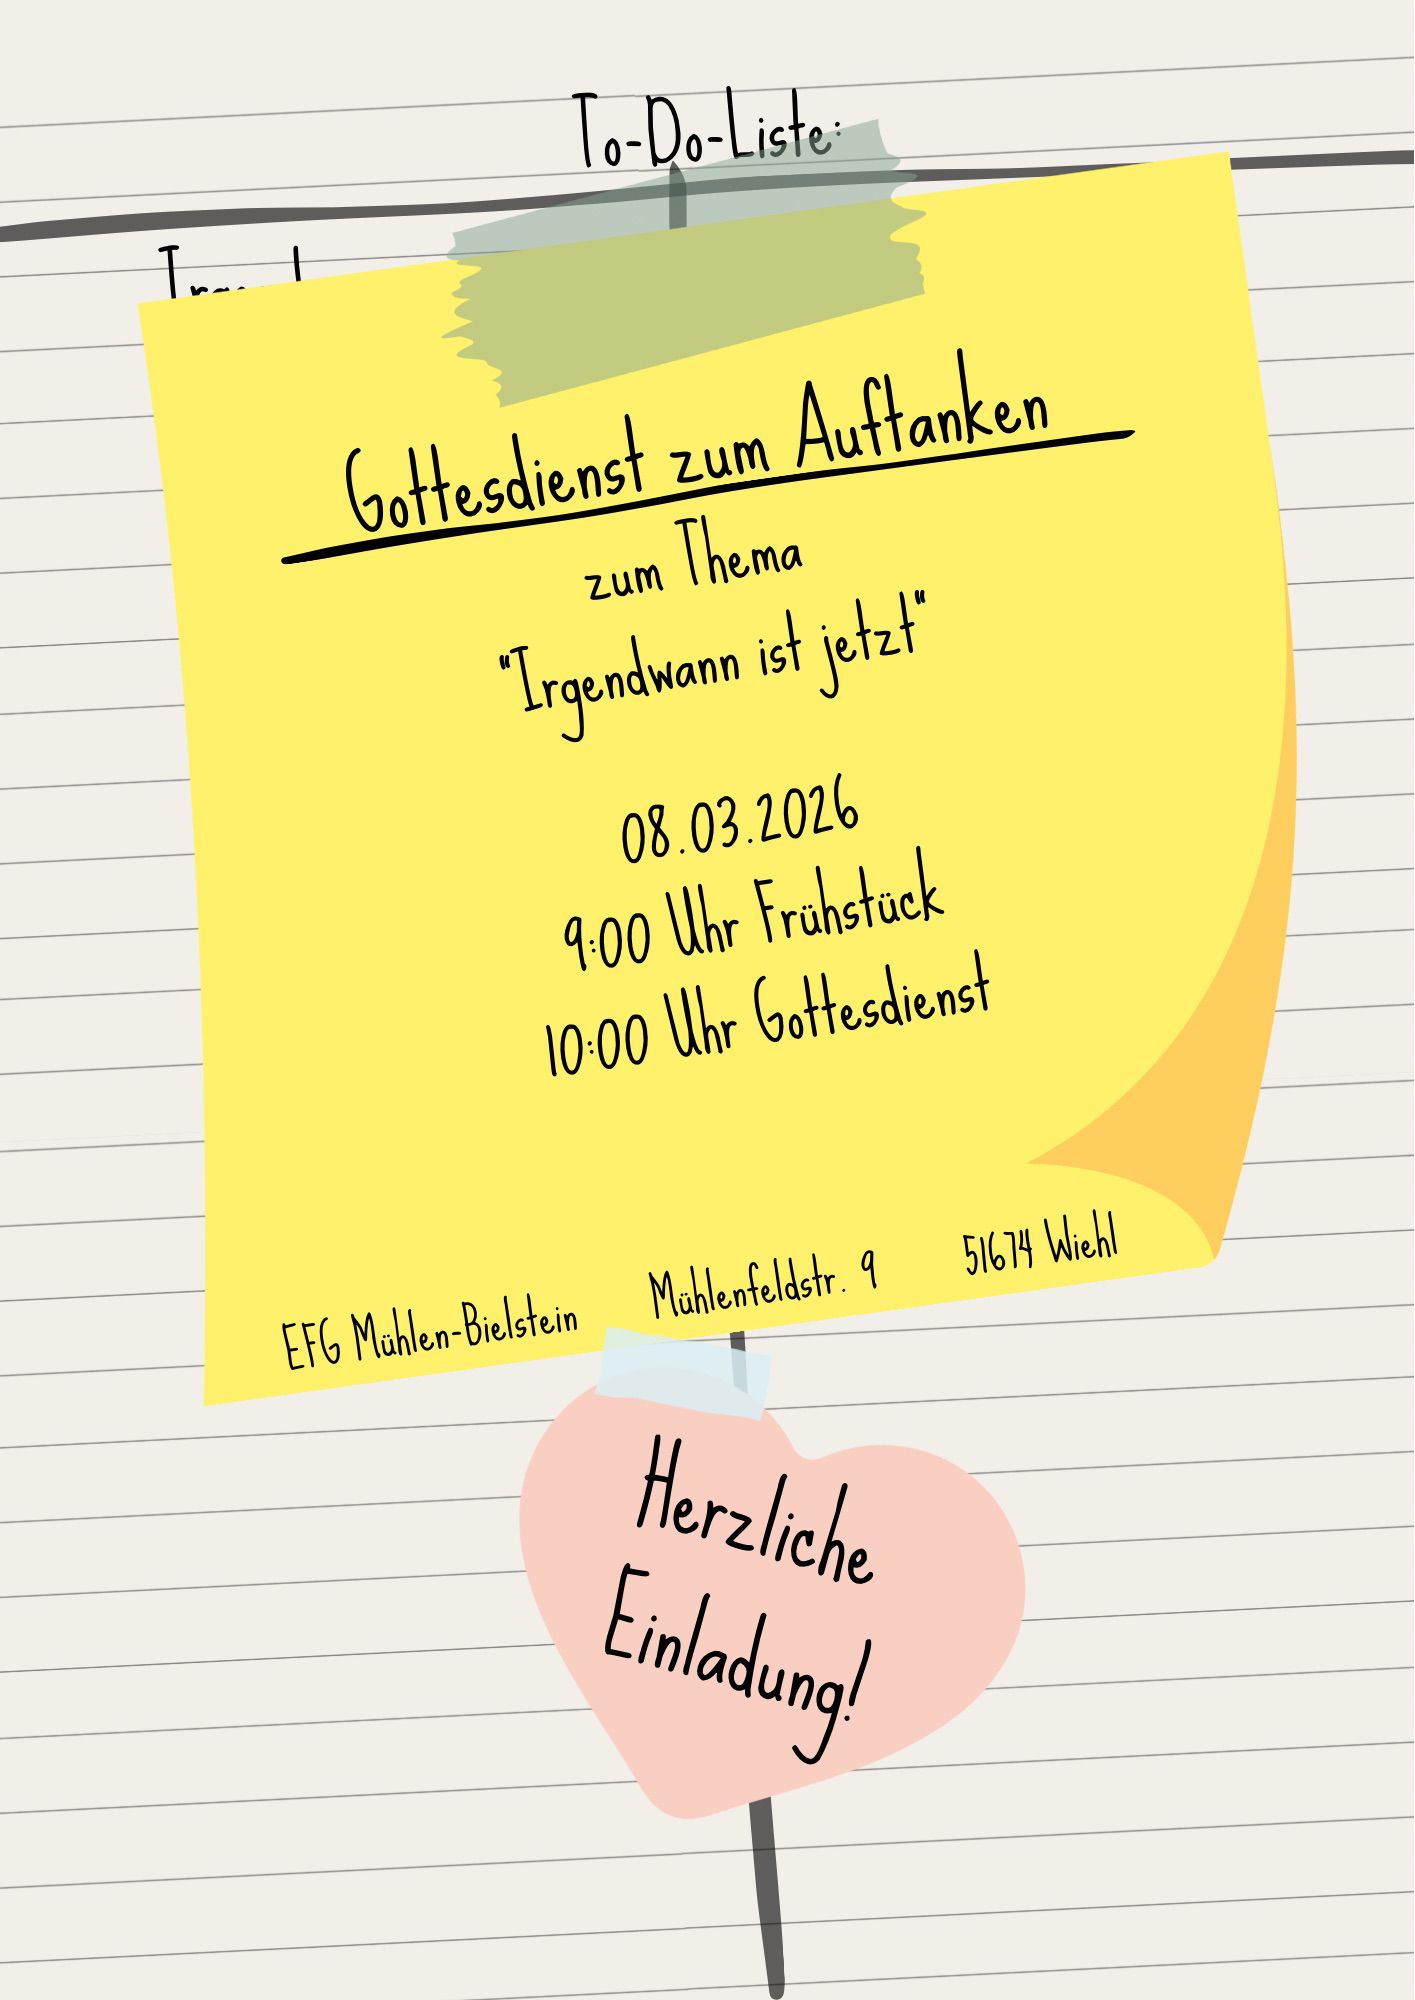 To-Do-Liste:
Gottesdienst zum Auftanken
zum Thema
"Irgendwann ist jetzt"
08.03.2026
9:00 Uhr Frühstück
10:00 Uhr Gottesdienst
EFG Mühlen-Bielstein Mühlenfeldstr. 9 51674 Wiehl
Herzliche
Einladung!